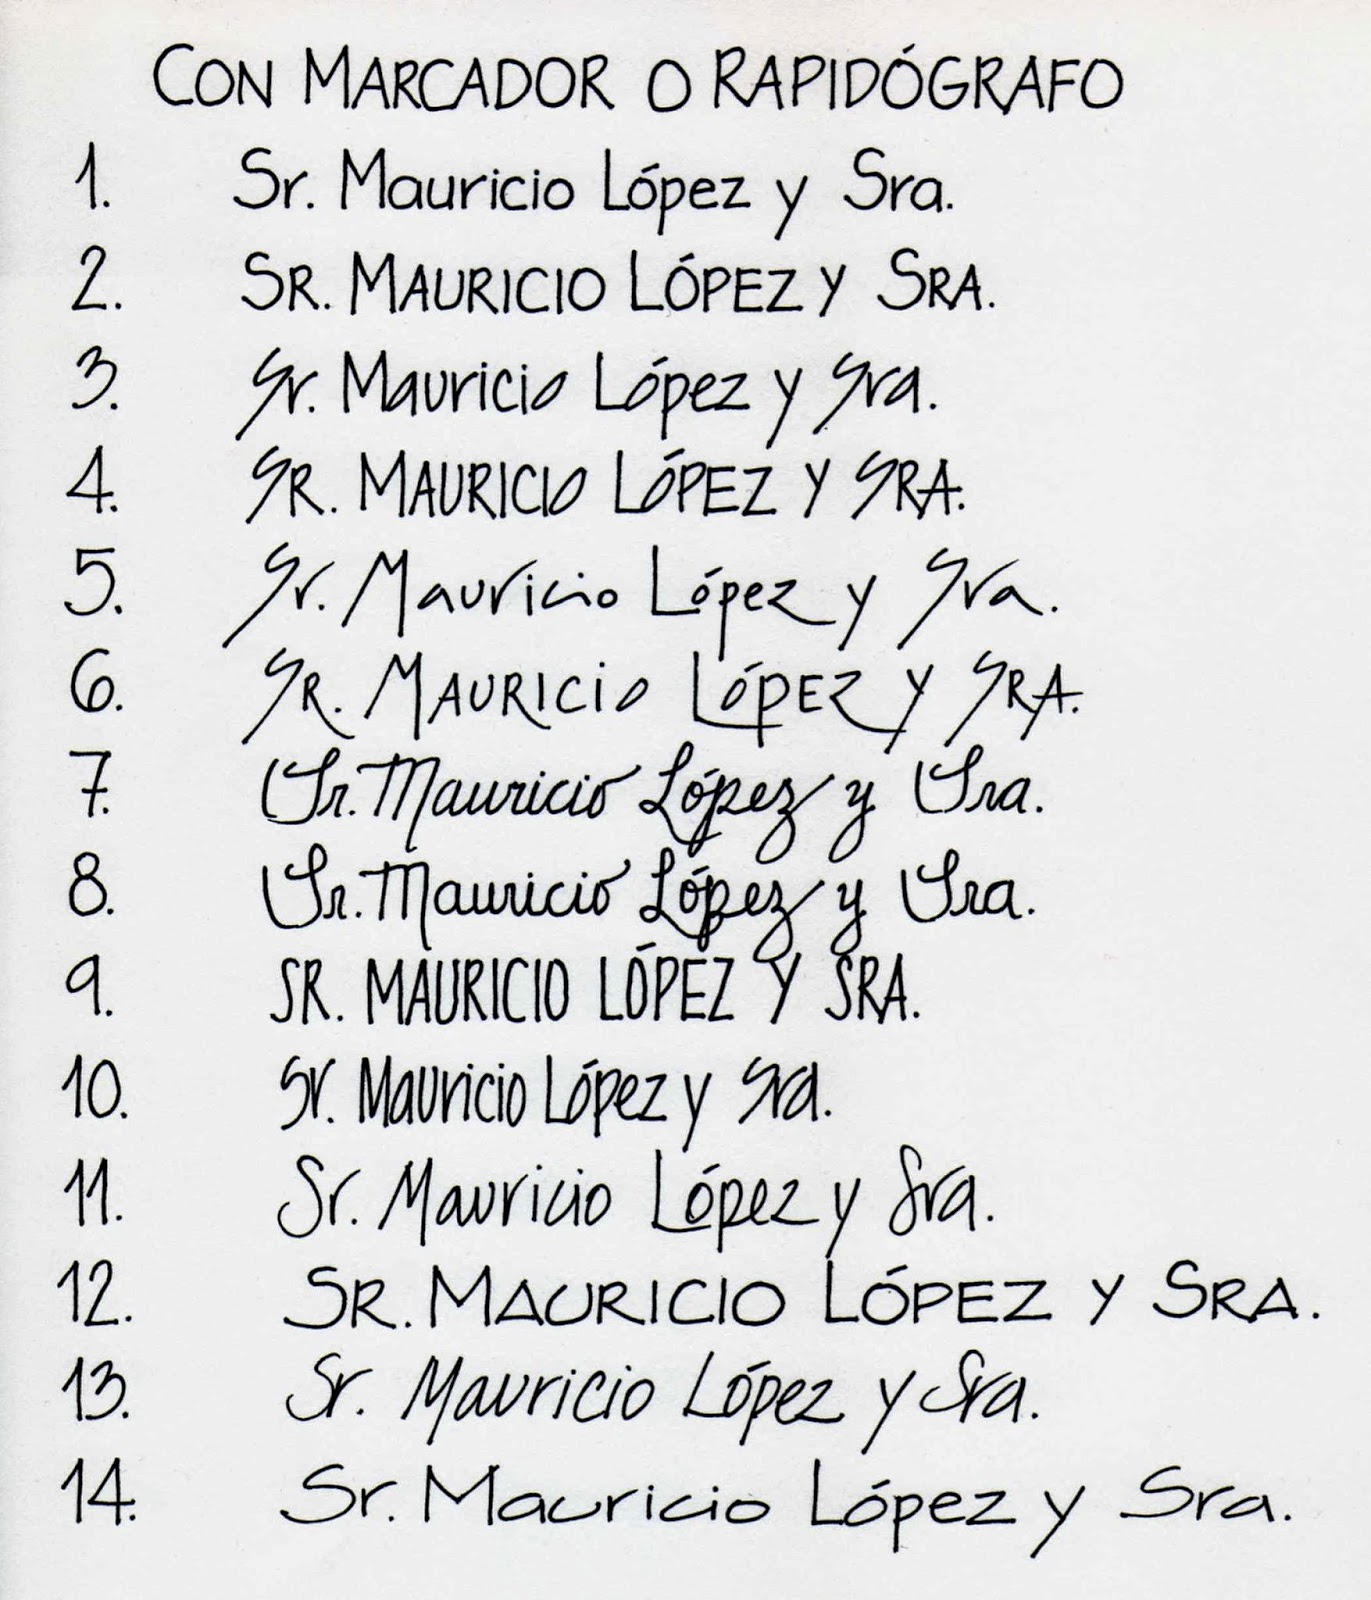 CON MARCADOR O RAPIDÓGRAFO
1. Sr. Mauricio López y Sra.
2. SR. MAURICIO LÓPEZ Y SRA.
3. Sr. Mauricio López y Sra.
4. SR. MAURICIO LÓPEZ Y SRA.
5. Sr. Mauricio López y Sra.
6. SR. MAURICIO LÓPEZ Y SRA.
7. Sr. Mauricio López y Sra.
8. Sr. Mauricio López y Sra.
9. SR. MAURICIO LÓPEZ Y SRA.
10. Sr. Mauricio López y Sra.
11. Sr. Mauricio López y Sra.
12. SR. MAURICIO LÓPEZ Y SRA.
13. Sr. Mauricio López y Sra.
14. Sr. Mauricio López y Sra.